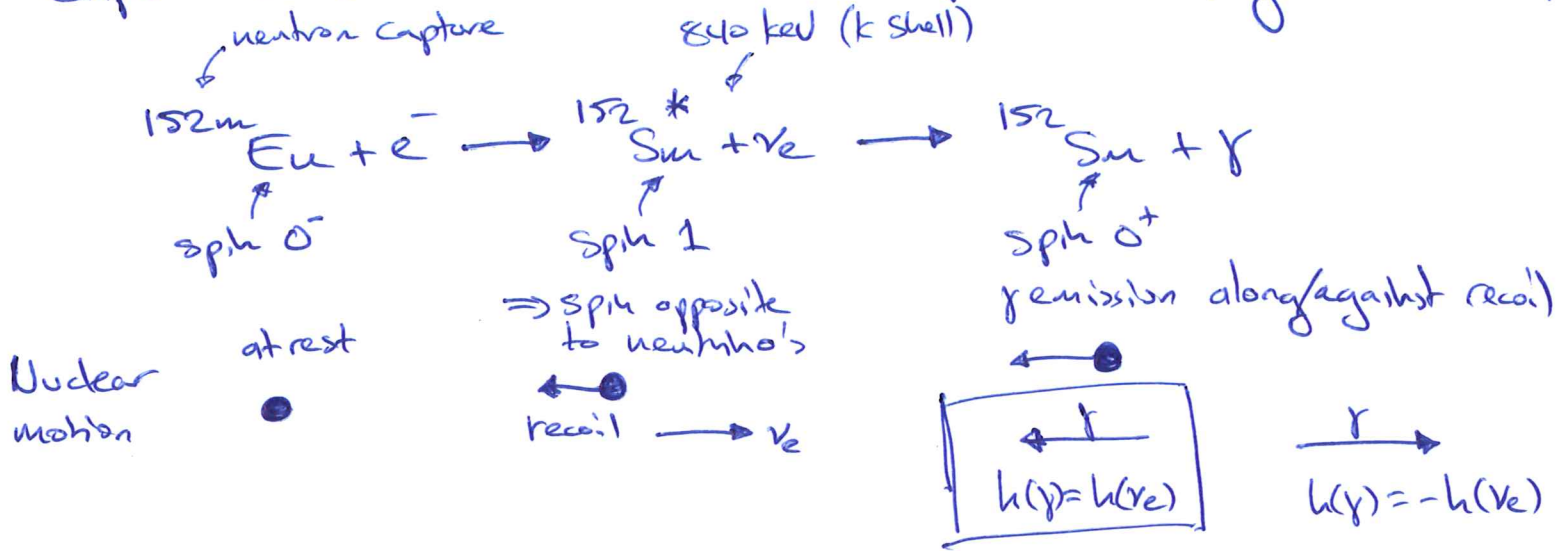 neutron capture
840 keV (k shell)
152m Eu + e⁻ → 152 Sm* + νe → 152 Sm + γ
spin 0⁻
spin 1
spin 0⁺
⇒ spin opposite
to neutrino's
γ emission along/against recoil
Nuclear
motion
at rest
recoil
νe
γ
h(γ)=h(νe)
γ
h(γ)=-h(νe)